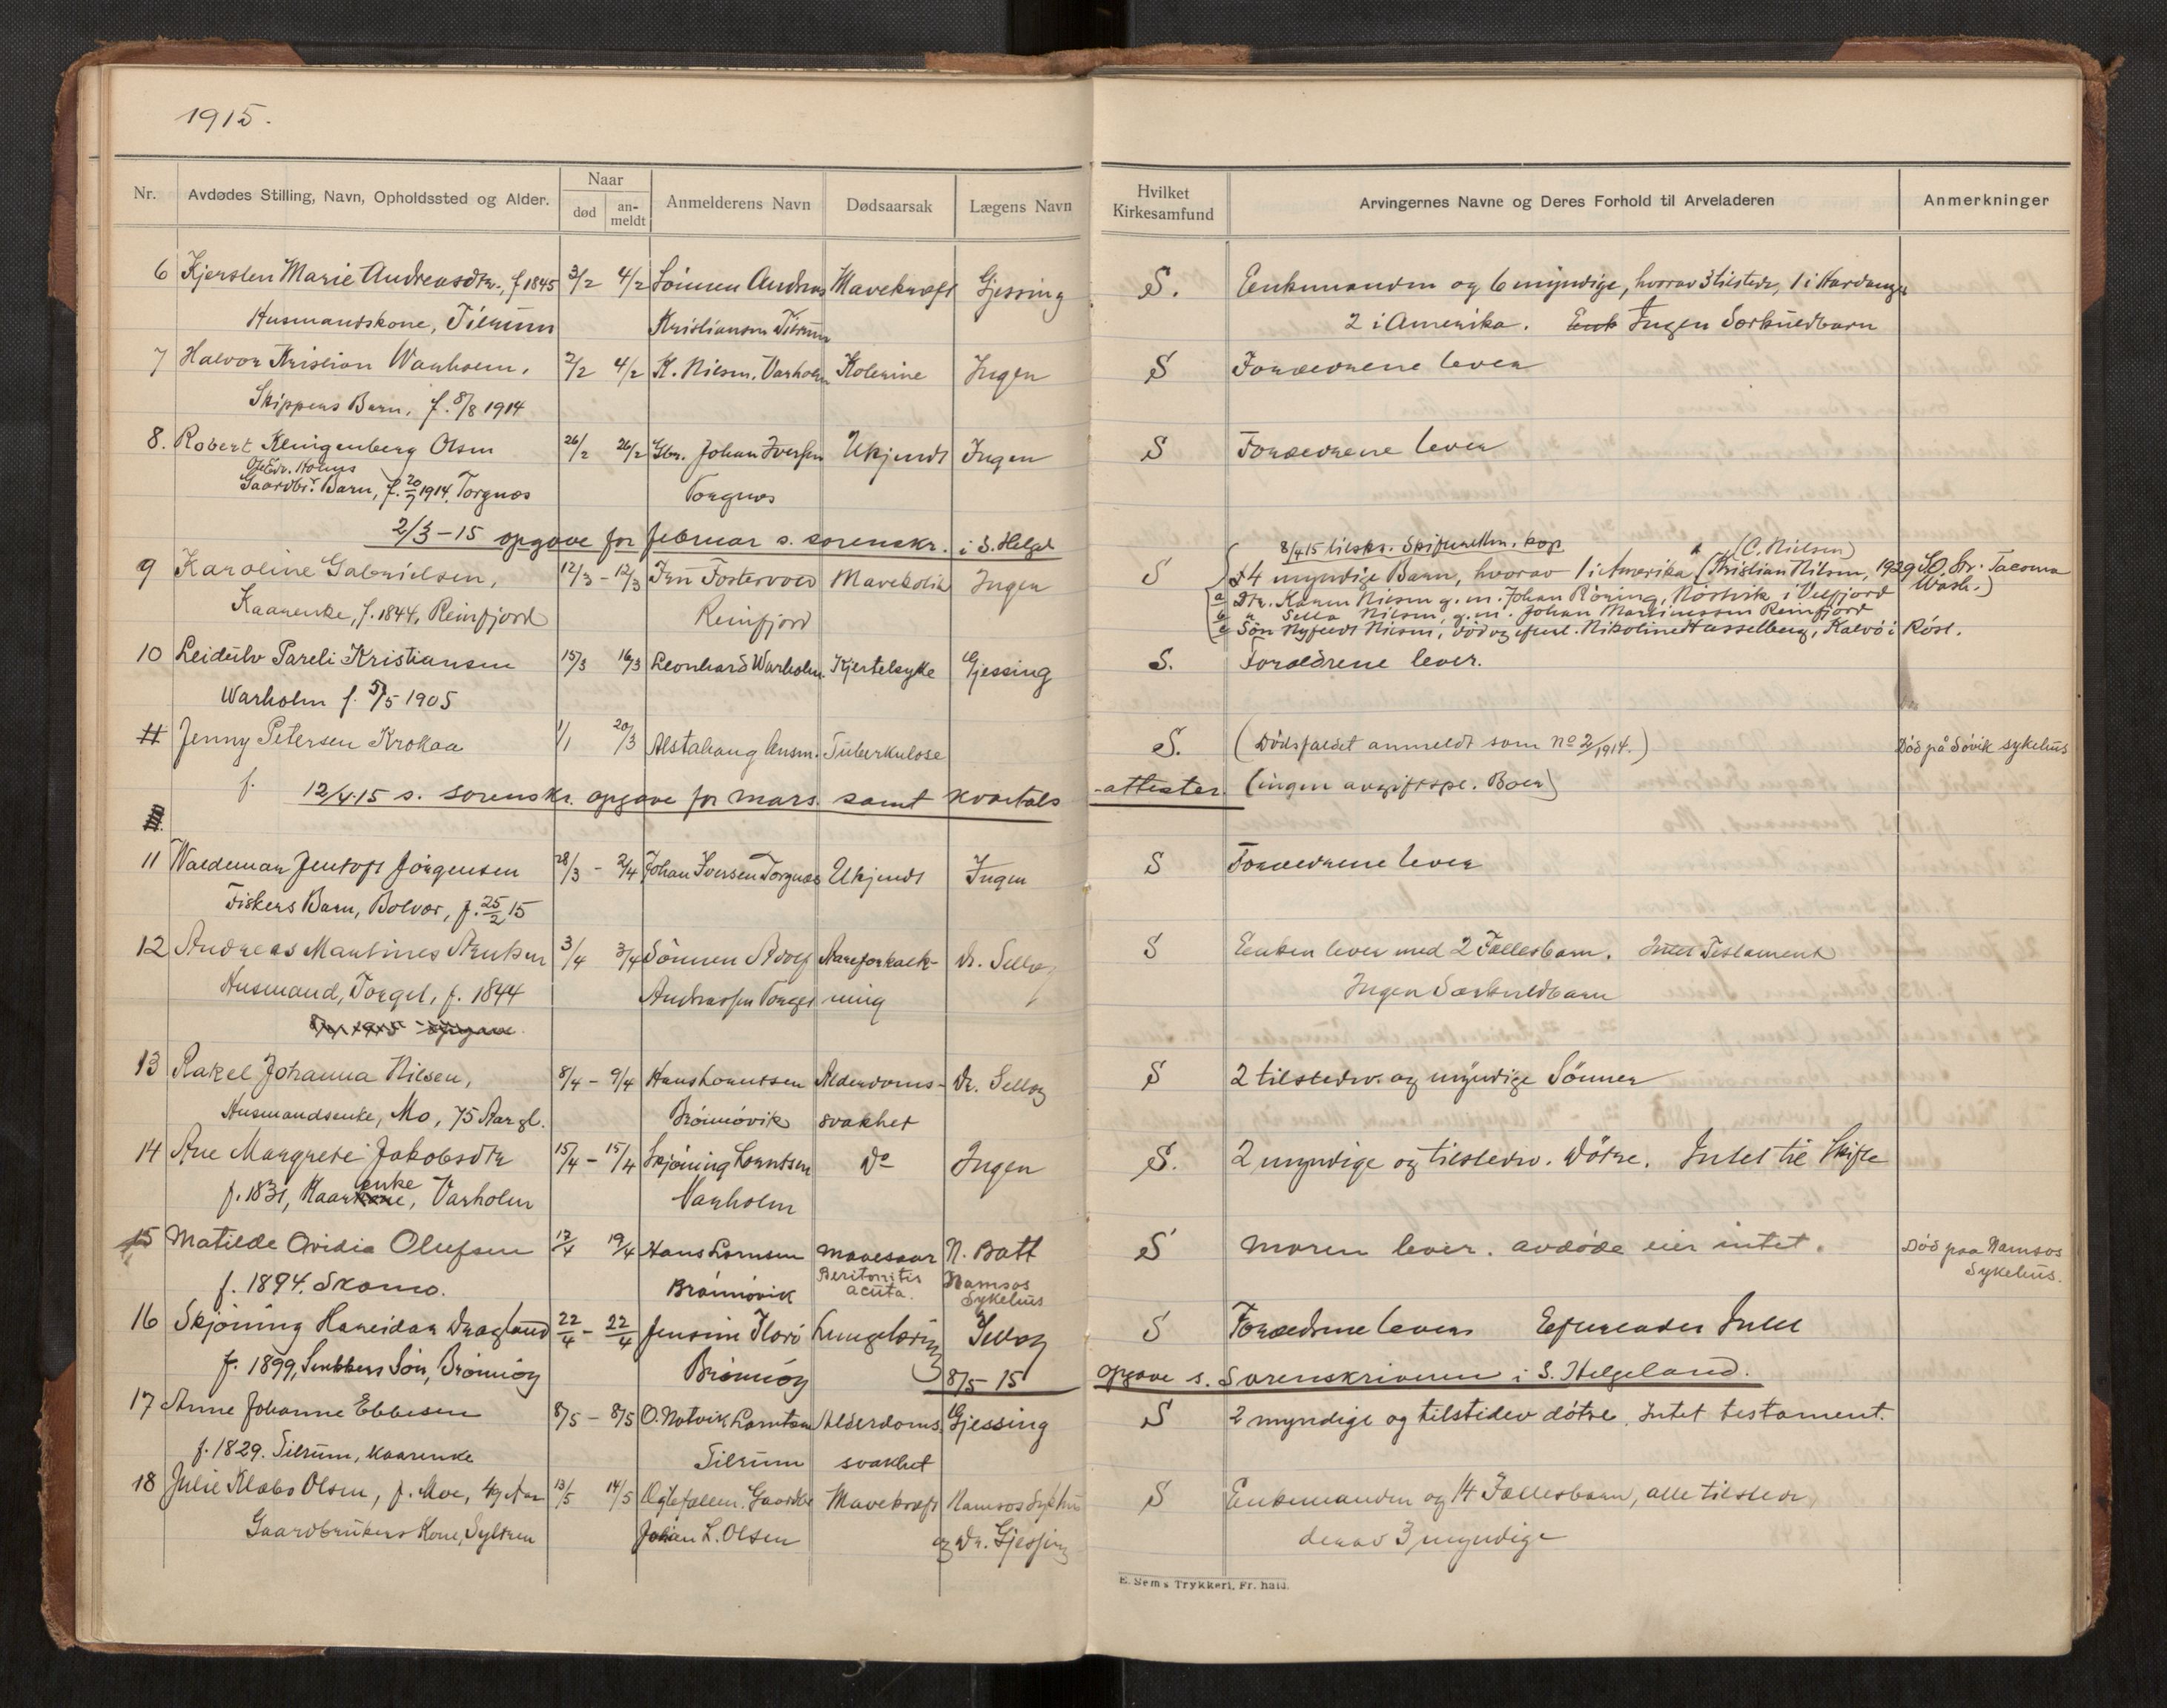 1915.
Nr. Avdødes Stilling, Navn, Opholdssted og Alder. Naar død an-meldt Anmelderens Navn Dødsaarsak Lægens Navn Hvilket Kirkesamfund Arvingernes Navne og Deres Forhold til Arveladeren Anmerkninger
6 Kjersten Marie Andreasdtr., f 1845 3/2 4/2 Sönnen Andreas Mavekræft Gjessing S. Enkemanden og 6 myndige, hvorav 3 tilstede, 1 i Hardanger
Husmandskone, Tilrum Kristiansen Tilrum 2 i Amerika. Enk Ingen Særkuldbarn
7 Halvor Kristian Warholm, 2/2 4/2 K. Nilsen, Varholm Kolerine Ingen S Forældrene lever
Skippers Barn, f. 8/8 1914
8. Robert Klingenberg Olsen 26/2 26/2 Gbr. Johan Iversen Ukjendt Ingen S Forældrene lever
Gaardbr. Barn, f. 20/7 1914, Torgnes Torgnes
2/3-15 opgave for februar s. sorenskr. i S. Helgel
8/4 15 tilskr. Skifterettn. kop (C. Nielsen)
9 Karoline Gabrielsen, 12/3 - 12/3 Fru Fostervold Mavekolik Ingen S 4 myndige Barn, hvorav 1 i Amerika (Kristian Nilsen, 1929 So. Str. Tacoma Wash.)
Kaarenke, f. 1844, Reinfjord Reinfjord a Dtr. Karen Nilsen g. m. Johan Röning, Nöstvik i Velfjord
b " Sella Nilsen, g. m. Johan Martinussen Reinfjord
c Søn Nyfeldt Nilsen, död og efterl. Nikoline Hasselberg, Kalvö i Röst.
10 Leidulv Pareli Kristiansen 15/3 16/3 Leonhard Warholm. Kjertelsyke Gjessing S. Forældrene lever.
Warholm f. 5/5 1905
11 Jenny Petersen Krokaa 1/1 20/3 Alstahaug lensm. Tuberkulose S. (Dödsfaldet anmeldt som No 2/1914.) Död på Sövik sykehus
f. 12/4.15 s. sorenskr. opgave for mars. samt kvartals-attester. (ingen avgiftspl. Boer)
11 Waldemar Jentoft Jörgensen 28/3 - 2/4 Johan Iversen Torgnes Ukjendt Ingen S Forældrene lever
Fiskers Barn, Bolvær, f. 25/2 15
12 Andreas Martines Arntsen 3/4 3/4 Sönnen Adolf Aareforkalk- Dr. Selboe S Enken lever med 2 Fællesbarn. Intet Testament
Husmand, Torget, f. 1844 Andreassen Torget ning Ingen Særkuldbarn
13 Rakel Johanna Nilsen, 8/4 - 9/4 Hans Lorntsen Alderdoms- Dr. Selboe S 2 tilstedev. og myndige Sönner
Husmandsenke, Mo, 75 Aar gl. Brönnövik svakhet
14 Ane Margrete Jakobsdtr 15/4 - 15/4 Skjöning Lorntsen Do Ingen S. 2 myndige og tilstedev. Dötre. Intet til Skifte
f. 1831, Kaarenke, Varholm Varholm
15 Matilde Ovidia Olufsen 17/4 19/4 Hans Lornsen Mavesaar N. Batt S Moren lever. avdöde eier intet. Död paa Namsos Sykehus.
f. 1894. Skomo. Brönnövik Peritonitis acuta. Namsos Sykehus
16 Skjöning Hareidar Dragland 22/4 - 22/4 Jensine Florö Lungetæring Selboe S Forældrene lever Efterlader Intet
f. 1899, Snekkers Sön, Brönnöy Brönnöy 8/5 15 opgave s. Sorenskriveren i S. Helgeland.
17 Anne Johanne Ebbesen 8/5 - 8/5 O. Notvik Lorntsen Alderdoms. Gjessing S 2 myndige og tilstedev dötre. Intet testament.
f. 1829. Tilrum, Kaarenke Tilrum svakhet
18 Julie Klabo Olsen, f. Moe, 49 Aar 13/5 14/5 Ægtefællen. Gaardbr Mavekræft Namsos Sykehus S Enkemanden og 14 Fællesbarn, alle tilstede
Gaardbrukers Kone, Sylteren Johan L. Olsen og Dr. Gjessing derav 3 myndige
E. Sem's Trykkeri, Fr. hald.